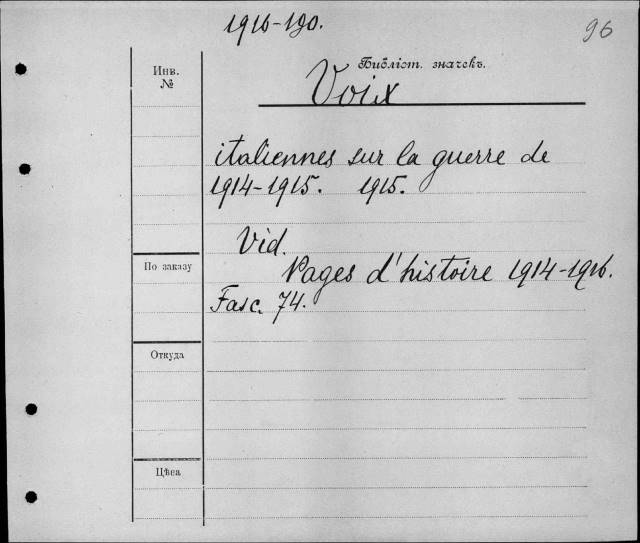 1916-190.
96
Инв.
№
Библіот. значекъ.
Voix
italiennes sur la guerre de
1914-1915. 1915.
Vid.
По заказу
Pages d'histoire 1914-1916.
Fasc. 74.
Откуда
Цѣна